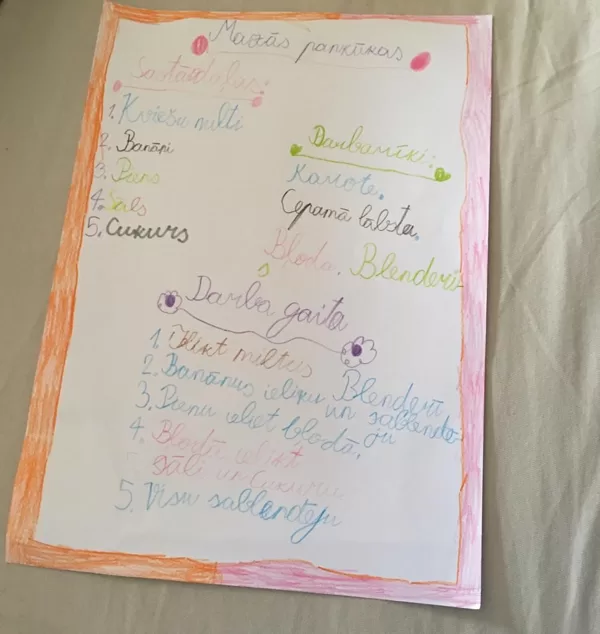 Mazās pankūkas
Sastāvdaļas:
1. Kviešu milti
2. Banāni
3. Piens
4. Sāls
5. Cukurs
Darbarīki:
Karote.
Cepamā lāpsta.
Bļoda. Blenderis
Darba gaita
1. Ielikt miltus
2. Banānus ieliku Blenderī
un sablendē-
ju
3. Pienu ieliet blodā,
4. Blodā ielikt
sāli un Cukuru
5. Visu sablendēju